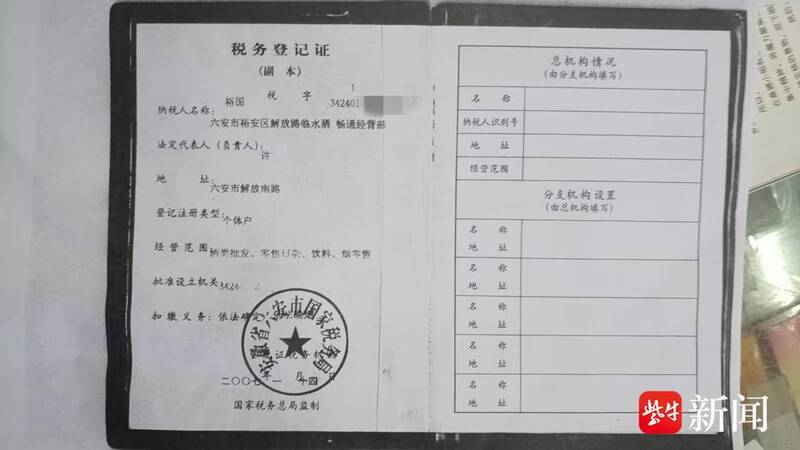 税务登记证
(副 本)
裕国 税 字 1
342401
纳税人名称:
六安市裕安区解放路临水酒 畅通经营部
法定代表人(负责人):
许
地 址:
六安市解放南路
登记注册类型:个体户
经营范围 酒类批发、零售日杂、饮料、烟零售
批准设立机关 3424 2
扣缴义务:依法确定
安徽省六安市国家税务局
证税务机
二〇〇七 一 十四
月 日
国家税务总局监制
总机构情况
(由分支机构填写)
名 称
纳税人识别号
地 址
经营范围
分支机构设置
(由总机构填写)
名 称
地 址
名 称
地 址
名 称
地 址
名 称
地 址
名 称
地 址
紫牛新闻